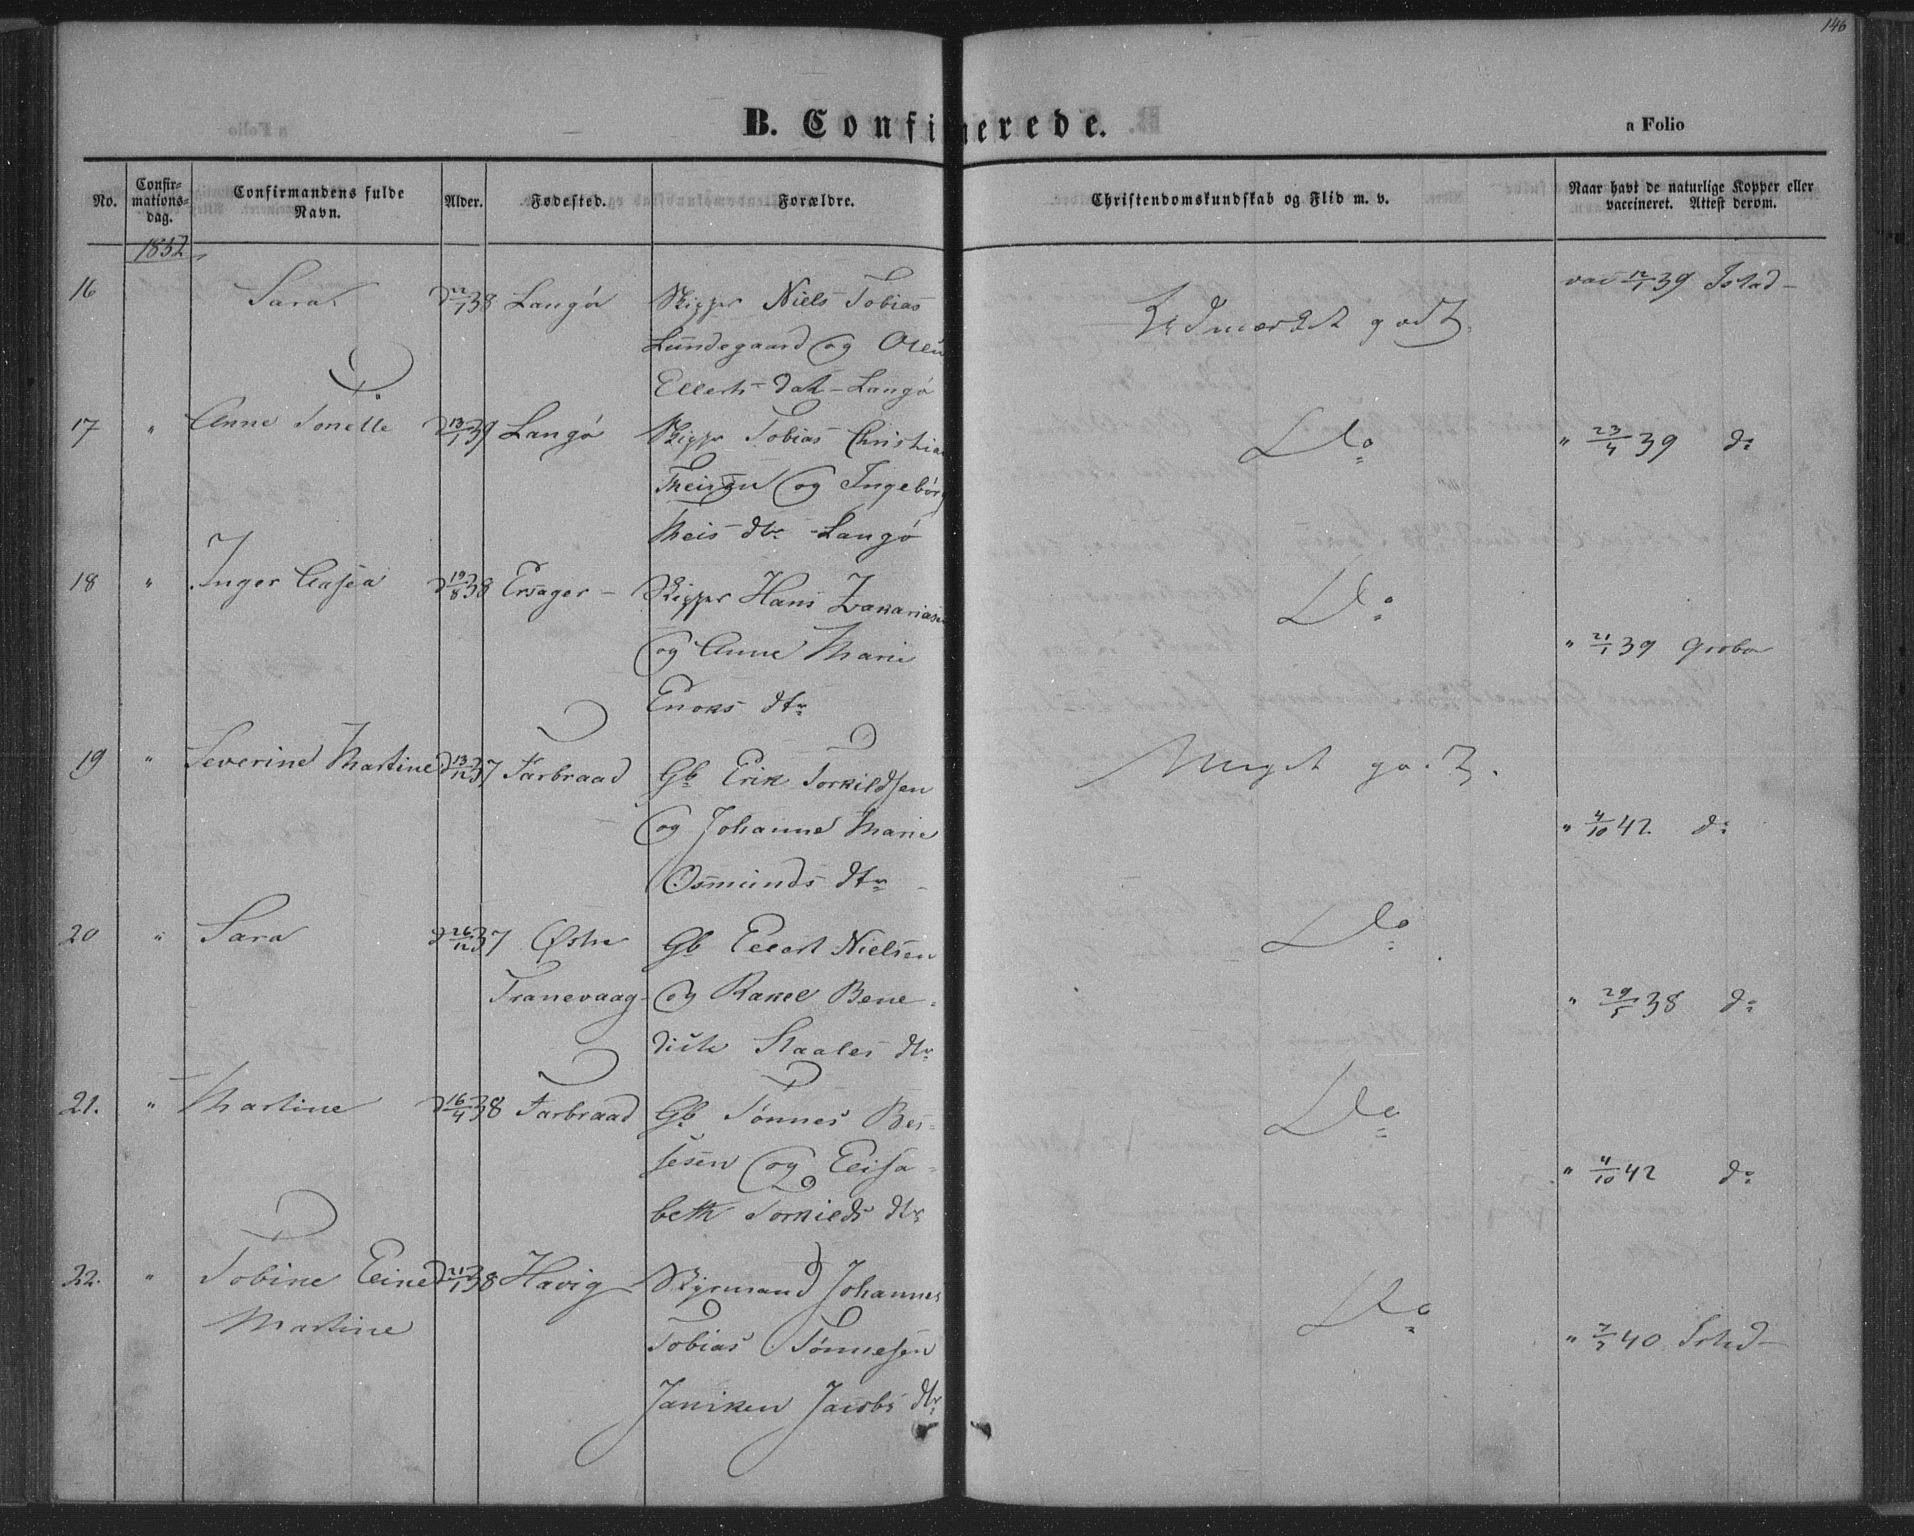 146
B. Confirmerede.
a Folio
No.
Confir-
mations-
dag.
Confirmandens fulde
Navn.
Alder.
Fødested.
Forældre.
Christendomskundskab og Flid m. v.
Naar havt de naturlige Kopper eller
vaccineret. Attest derom.
16 Sara Langøe Skipper Niels Tobias
Lundegaard og
Ellerts dat Langø
vac 12/1 39
17 " Anne Tonette d 13/1 39 Langøe Skippr Tobias Christian
Theisen og Ingebor
Theis dtr Langø
Do
" 23/4 39 do
18 " Inger Aasea d 19/8 38 Skipper Hans Zakariasen
og Anne Marie
Enoks dtr
Do
" 21/1 39
19 " Severine Martine d 13/12 37 Farbraad Gb Erik Torkildsen
og Johanne Marie
Osmunds dtr
Meget godt.
" 4/10 42 do
20 " Sara d 26/12 37 Østre
Tranevaag Gb Ellert Nielsen
og Rakel Bene-
dicte Staales dtr
Do
" 29/5 38 do
21. " Martine d 16/4 38 Farbraad Gb Tønnes Ber-
tesen og Elisa-
beth Torkilds dtr
Do
" 4/10 42 do
22. " Tobine Eline
Martine d 21/1 38 Havig Styrmand Johannes
Tobias Tønnesen
Janiken Jacobs dtr
Do